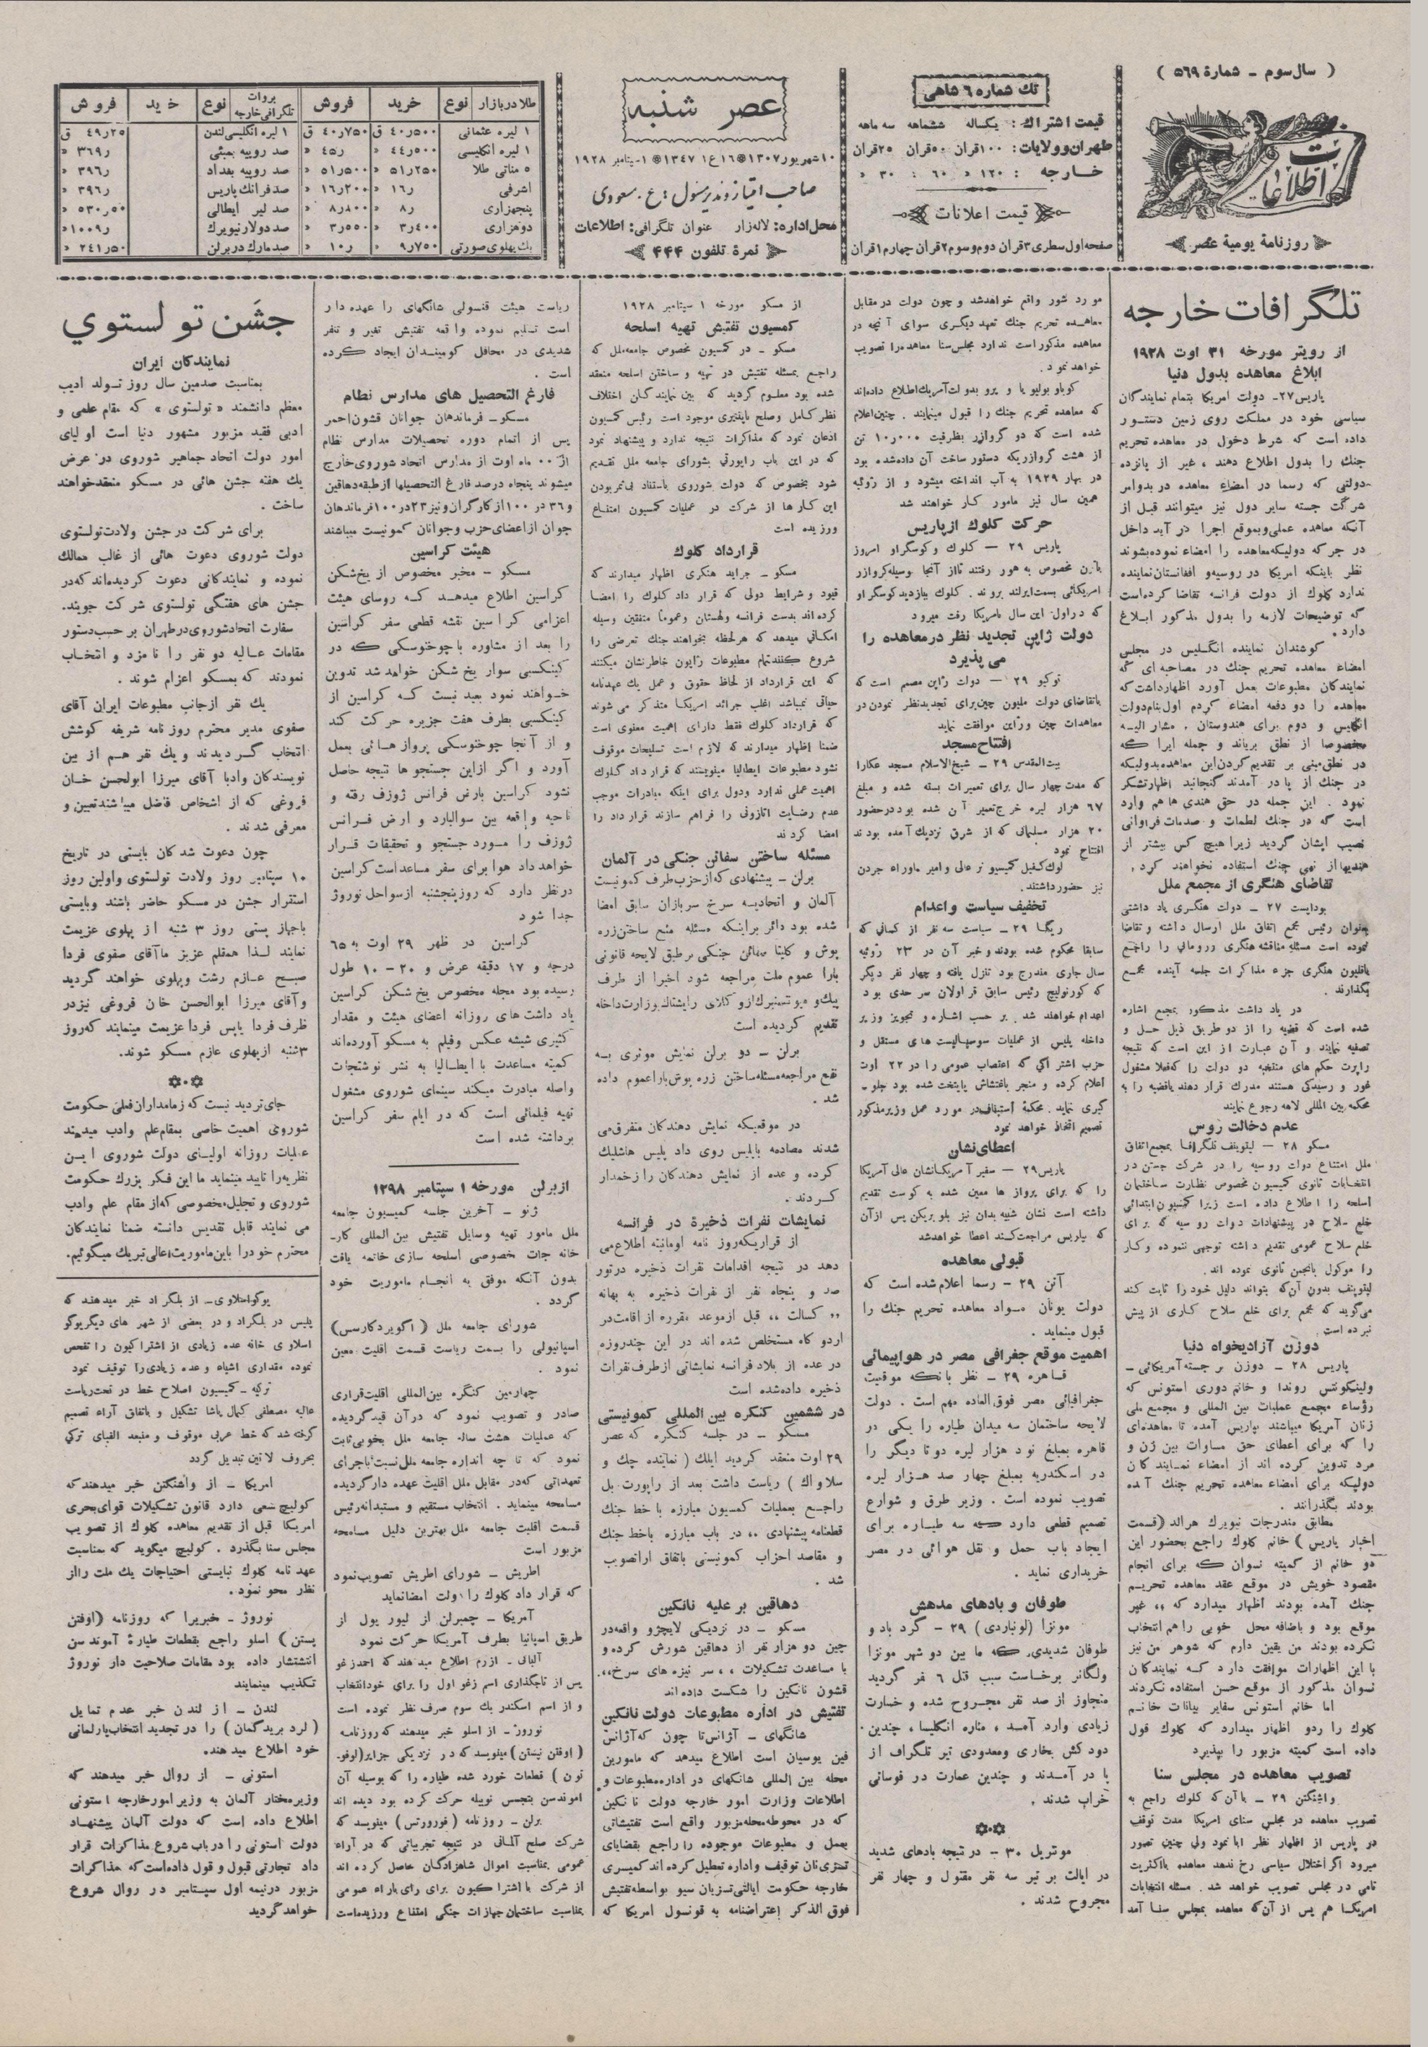 ( سال سوم - شمارهٔ ۵۶۹ )
اطلاعات
روزنامهٔ یومیهٔ عصر
تك شماره ۶ شاهی
قیمت اشتراك: یكساله ششماهه سه ماهه
طهران و ولایات: ۱۰۰ قران ۵۰ قران ۲۵ قران
خارجه : ۱۲۰ » ۶۰ : ۳۰ »
قیمت اعلانات
صفحه اول سطری ۳ قران دوم و سوم ۲ قران چهارم ۱ قران
عصر شنبه
۱۰ شهریور ۱۳۰۷ ۱۶ ع ۱ ۱۳۴۷ ۱ سپتامبر ۱۹۲۸
صاحب امتیاز و مدیر مسئول : ع . مسعودی
محل اداره: لاله زار عنوان تلگرافی: اطلاعات
نمرهٔ تلفون ۴۴۴
طلا در بازار نوع خرید فروش
۱ لیره عثمانی ۴۰٫۵۰۰ ق ۴۰٫۷۵۰ ق
۱ لیره انگلیسی ۴۴٫۵۰۰ » ۴۵٫ »
۵ مناتی طلا ۵۱٫۲۵۰ » ۵۱٫۵۰۰ »
اشرفی ۱۶٫ » ۱۶٫۲۰۰ »
پنجهزاری ۸٫ » ۸٫۸۰۰ »
دوهزاری ۳٫۴۰۰ » ۳٫۵۵۰ »
یك پهلوی صورتی ۹٫۷۵۰ » ۱۰٫ »
بروات تلگرافی خارجه نوع خرید فروش
۱ لیره انگلیسی لندن ۴۹٫۲۵ ق
صد روپیه بمبئی ۳۶۹٫ »
صد روپیه بغداد ۳۹۶٫ »
صد فرانك پاریس ۳۹۶٫ »
صد لیر ایطالی ۵۳۰٫۵۰ »
صد دولار نیویرك ۱۰۰۹٫ »
صد مارك در برلن ۲۴۱٫۵۰ »
تلگرافات خارجه
از رویتر مورخه ۳۱ اوت ۱۹۲۸
ابلاغ معاهده بدول دنیا
پاریس ۲۷- دولت امریكا بتمام نمایندگان
سیاسی خود در مملكت روی زمین دستور
داده است كه شرط دخول در معاهده تحریم
جنك را بدول اطلاع دهند ، غیر از پانزده
دولتی كه رسما در امضاء معاهده در بدو امر
شركت جسته سایر دول نیز میتوانند قبل از
آنكه معاهده عملی و بموقع اجرا در آید داخل
در جركه دولیكه معاهده را امضاء نموده بشوند
نظر باینكه امریكا در روسیه و افغانستان نماینده
ندارد كلوك از دولت فرانسه تقاضا كرده است
كه توضیحات لازمه را بدول مذكور ابلاغ
دارد .
كوشندان نماینده انگلیس در مجلس
امضاء معاهده تحریم جنك در مصاحبه ای كه
نمایندگان مطبوعات بعمل آورد اظهار داشت كه
معاهده را دو دفعه امضاء كردم اول بنام دولت
انگلیس و دوم برای هندوستان . مشار الیه
مخصوصا از نطق بریاند و جمله ایرا كه
در نطق مبنی بر تقدیم كردن این معاهده بدولیكه
در جنك از پا در آمدند گنجانید اظهار تشكر
نمود . این جمله در حق هندی ها هم وارد
است كه در جنك لطمات و صدمات فراوانی
نصیب ایشان گردید زیرا هیچ كس بیشتر از
هندیها از نهی جنك استفاده نخواهند كرد .
تقاضای هنگری از مجمع ملل
بوداپست ۲۷ - دولت هنگری یاد داشتی
بعنوان رئیس مجمع اتفاق ملل ارسال داشته و تقاضا
نموده است مسئله مناقشه هنگری و رومانی را راجع
باقلیون هنگری جزء مذاكرات جلسه آینده مجمع
بگذارند .
در یاد داشت مذكور بمجمع اشاره
شده است كه قضیه را از دو طریق ذیل حل و
تصفیه نمایند و آن عبارت از این است كه نتیجه
راپرت حكم های منتخبه دو دولت را كه فعلا مشغول
غور و رسیدگی هستند مدرك قرار دهند یا قضیه را به
محكمه بین المللی لاهه رجوع نمایند
عدم دخالت روس
مسكو ۲۸ - لیتوینف تلگرافا بمجمع اتفاق
ملل امتناع دولت روسیه را در شركت جستن در
انتخابات ثانوی كمیسیون مخصوص نظارت ساختمان
اسلحه را اطلاع داده است زیرا كمسیون ابتدائی
خلع سلاح در پیشنهادات دولت روسیه كه برای
خلع سلاح عمومی تقدیم داشته توجهی ننموده و كار
را موكول بانجمن ثانوی نموده اند .
لیتوینف بدون آن كه بتواند دلیل خود را ثابت كند
می گوید كه مجمع برای خلع سلاح كاری از پیش
نبرده است .
دوزن آزادیخواه دنیا
پاریس ۲۸ - دوزن برجسته آمریكائی -
ولینكونتس روندا و خانم دوری استونس كه
رؤساء مجمع عملیات بین المللی و مجمع ملی
زنان آمریكا میباشند بپاریس آمده تا معاهده ای
را كه برای اعطای حق مساوات بین زن و
مرد تدوین كرده اند از امضاء نمایندگان
دولیكه برای امضاء معاهده تحریم جنك آمده
بودند بگذرانند .
مطابق مندرجات نیویرك هرالد (قسمت
اخبار پاریس) خانم كلوك راجع بحضور این
دو خانم از كمیته نسوان كه برای انجام
مقصود خویش در موقع عقد معاهده تحریم
جنك آمده بودند اظهار میدارد كه ،، غیر
موقع بود و باضافه محل خوبی را هم انتخاب
نكرده بودند من یقین دارم كه شوهر من نیز
با این اظهارات موافقت دارد كه نمایندگان
نسوان مذكور از موقع حسن استفاده نكردند
اما خانم استونس سفایر بیانات خانم
كلوك را ردو اظهار میدارد كه كلوك قول
داده است كمیته مزبور را بپذیرد
تصویب معاهده در مجلس سنا
واشنگتن ۲۹ - با آن كه كلوك راجع به
تصویب معاهده در مجلس سنای امریكا مدت توقف
در پاریس از اظهار نظر ابا نمود ولی چنین تصور
میرود اگر اختلال سیاسی رخ ندهد معاهده با اكثریت
تامی در مجلس تصویب خواهد شد . مسئله انتخابات
امریكا هم پس از آن كه معاهده بمجلس سنا آمد
مورد شور واقع خواهد شد و چون دولت در مقابل
معاهده تحریم جنك تعهد دیگری سوای آنچه در
معاهده مذكور است ندارد مجلس سنا معاهده را تصویب
خواهد نمود .
كوباو بولیویا و پرو بدولت آمریك اطلاع داده اند
كه معاهده تحریم جنك را قبول مینمایند . چنین اعلام
شده است كه دو گروازر بظرفیت ۱۰٫۰۰۰ تن
از هشت گروازریكه دستور ساخت آن داده شده بود
در بهار ۱۹۲۹ به آب انداخته میشود و از ژوئیه
همین سال نیز مامور كار خواهند شد
حركت كلوك از پاریس
پاریس ۲۹ - كلوك و كوسگراو امروز
باترن مخصوص به هور رفتند تا از آنجا بوسیله كروازر
امریكائی بست ایرلند بروند . كلوك ببازدید كوسگراو
كه در اول این سال بامریكا رفت میرود
دولت ژاپن تجدید نظر در معاهده را
می پذیرد
توكیو ۲۹ - دولت ژاپن مصمم است كه
باتقاضای دولت ملیون چین برای تجدید نظر نمودن در
معاهدات چین و ژاپن موافقت نماید
افتتاح مسجد
بیت المقدس ۲۹ - شیخ الاسلام مسجد عكارا
كه مدت چهار سال برای تعمیرات بسته شده و مبلغ
۶۷ هزار لیره خرج تعمیر آن شده بود در حضور
۲۰ هزار مسلمانی كه از شرق نزدیك آمده بودند
افتتاح نمود
لوك كفیل كمیسیونر عالی و امیر ماوراء جردن
نیز حضور داشتند .
تخفیف سیاست و اعدام
ریگا ۲۹ - سیاست سه نفر از كسانی كه
سابقا محكوم شده بودند و خبر آن در ۲۳ ژوئیه
سال جاری مندرج بود تنازل یافته و چهار نفر دیگر
كه كورنولیچ رئیس سابق قراولان سرحدی بود
اعدام خواهد شد . بر حسب اشاره و تجویز وزیر
داخله پلیس از عملیات سوسیالیست های مستقل و
حزب اشتراكی كه اعتصاب عمومی را در ۲۲ اوت
اعلام كرده و منجر باغتشاش پایتخت شده بود جلو-
گیری نماید . محكمهٔ استیناف در مورد عمل وزیر مذكور
تصمیم اتخاذ خواهد نمود
اعطای نشان
پاریس ۲۹ - سفیر آمریك نشان عالی آمریكا
را كه برای پرواز ها معین شده به كوست تقدیم
داشته است نشان شبیه بدان نیز بلوبریكس پس از آن
كه بپاریس مراجعت كند اعطا خواهد شد
قبولی معاهده
آتن ۲۹ - رسما اعلام شده است كه
دولت یونان مواد معاهده تحریم جنك را
قبول مینماید .
اهمیت موقع جغرافی مصر در هواپیمائی
قاهره ۲۹ - نظر بانكه موقعیت
جغرافیائی مصر فوق العاده مهم است . دولت
لایحه ساختمان سه میدان طیاره را یكی در
قاهره بمبلغ نود هزار لیره دو تا دیگر را
در اسكندریه بمبلغ چهار صد هزار لیره
تصویب نموده است . وزیر طرق و شوارع
تصمیم قطعی دارد كه سه طیاره برای
ایجاد باب حمل و نقل هوائی در مصر
خریداری نماید .
طوفان و بادهای مدهش
مونزا (لونباردی) ۲۹ - گرد باد و
طوفان شدیدی كه ما بین دو شهر مونزا
ولگانر برخاست سبب قتل ۶ نفر گردید
متجاوز از صد نفر مجروح شده و خسارت
زیادی وارد آمد ، مناره انكلیسا ، چندین
دودكش بخاری و معدودی تیر تلگراف از
پا در آمدند و چندین عمارت در فوسانی
خراب شدند .
مونتریل ۳۰ - در نتیجه بادهای شدید
در ایالت برتیر سه نفر مقتول و چهار نفر
مجروح شدند .
از مسكو مورخه ۱ سپتامبر ۱۹۲۸
كمسیون تفتیش تهیه اسلحه
مسكو - در كمسیون مخصوص جامعه ملل كه
راجع بمسئله تفتیش در تهیه و ساختن اسلحه منعقد
شده بود معلوم گردید كه بین نمایندگان اختلاف
نظر كامل و صلح ناپذیری موجود است رئیس كمسیون
اذعان نمود كه مذاكرات نتیجه ندارد و پیشنهاد نمود
كه در این باب راپورتی بشورای جامعه ملل تقدیم
شود بخصوص كه دولت شوروی باستناد بی ثمر بودن
این كارها از شركت در عملیات كمسیون امتناع
ورزیده است
قرارداد كلوك
مسكو - جراید هنگری اظهار میدارند كه
قیود و شرایط دولی كه قرار داد كلوك را امضا
كرده اند بدست فرانسه و لهستان و عموما متفقین وسیله
امكانی میدهد كه هر لحظه بخواهند جنك تعرضی را
شروع كنند تمام مطبوعات ژاپون خاطر نشان میكنند
كه این قرارداد از لحاظ حقوق و عمل یك عهدنامه
حیاتی نمیباشد اغلب جرائد امریكا متذكر می شوند
كه قرارداد كلوك فقط دارای اهمیت معنوی است
ضمنا اظهار میدارند كه لازم است تسلیحات موقوف
نشود مطبوعات ایطالیا مینویسند كه قرار داد كلوك
اهمیت عملی ندارد و دول برای اینكه مبادرات موجب
عدم رضایت اتازونی را فراهم سازند قرارداد را
امضا كردند
مسئله ساختن سفائن جنكی در آلمان
برلن - پیشنهادی كه از حزب طرف كمونیست
آلمان و اتحادیه سرخ سربازان سابق امضا
شده بود دائر براینكه مسئله منع ساختن زره
پوش و كلیتا سفائن جنكی بر طبق لایحه قانونی
بارا عموم ملت مراجعه شود اخیرا از طرف
پیك و مونتسنبرك از وكلای رایشتاك بوزارت داخله
تقدیم گردیده است
برلن - دو برلن نمایش موثری به
نفع مراجعه مسئله ساختن زره پوش باراعموم داده
شد .
در موقعیكه نمایش دهندگان متفرق می
شدند مصادمه باپلیس روی داد پلیس هاشلیك
كرده و عده از نمایش دهندگان را زخمدار
كردند .
نمایشات نفرات ذخیرهٔ در فرانسه
از قراریكه روز نامه اومانیته اطلاع می
دهد در نتیجه اقدامات نفرات ذخیره در تور
صد و پنجاه نفر از نفرات ذخیره به بهانه
،، كسالت ،، قبل از موعد مقرره از اقامت در
اردو گاه مستخلص شده اند در این چند روزه
در عده از بلاد فرانسه نمایشاتی از طرف نفرات
ذخیره داده شده است
در ششمین كنكره بین المللی كمونیستی
مسكو - در جلسه كنكره كه عصر
۲۹ اوت منعقد گردید ایلك ( نماینده چك و
سلاواك ) ریاست داشت بعد از راپورت بل
راجع بعملیات كمسیون مبارزه با خط جنك
قطعنامه پیشنهادی ،، در باب مبارزه باخط جنك
و مقاصد احزاب كمونیستی باتفاق آرا تصویب
شد .
دهاقین بر علیه نانكین
مسكو - در نزدیكی لایچژو واقعه در
چین دو هزار نفر از دهاقین شورش كرده و
با مساعدت تشكیلات ،، سر نیزه های سرخ ،،
قشون نانكین را شكست داده اند
تفتیش در اداره مطبوعات دولت نانكین
شانگهای - آژانس تا چون كه آژانس
فین یوسیان است اطلاع میدهد كه مامورین
محله بین المللی شانگهای در اداره مطبوعات و
اطلاعات وزارت امور خارجه دولت نانكین
كه در محوطه محله مزبور واقع است تفتیشاتی
بعمل و مطبوعات موجوده را راجع بقضایای
تسنزی نان توقیف و اداره تعطیل كرده اند كمیسری
خارجه حكومت ایالتی تسزیان سیو بواسطه تفتیش
فوق الذكر اعتراضنامه به قونسول امریكا كه
ریاست هیئت قنسولی شانگهای را عهده دار
است تسلیم نموده واقعه تفتیش تغیر و تنفر
شدیدی در محافل كومیندان ایجاد كرده
است .
فارغ التحصیل های مدارس نظام
مسكو - فرماندهان جوانان قشون احمر
پس از اتمام دوره تحصیلات مدارس نظام
از ماه اوت از مدارس اتحاد شوروی خارج
میشوند پنجاه درصد فارغ التحصیلها از طبقه دهاقین
و ۳۶ در ۱۰۰ از كارگران و نیز ۲۳ در ۱۰۰ فرماندهان
جوان از اعضای حزب و جوانان كمونیست میباشند
هیئت كراسین
مسكو - مخبر مخصوص از یخ شكن
كراسین اطلاع میدهد كه روسای هیئت
اعزامی كراسین نقشه قطعی سفر كراسین
را بعد از مشاوره با چوخنوسكی كه در
كینكسی سوار یخ شكن خواهد شد تدوین
خواهند نمود بعید نیست كه كراسین از
كینكسی بطرف هفت جزیره حركت كند
و از آنجا چوخنوسكی پرواز هائی بعمل
آورد و اگر ازاین جستجو ها نتیجه حاصل
نشود كراسین بارض فرانس ژوزف رفته و
ناحیه واقعه بین سوالبارد و ارض فرانس
ژوزف را مورد جستجو و تحقیقات قرار
خواهد داد هوا برای سفر مساعد است كراسین
در نظر دارد كه روز پنجشنبه از سواحل نوروژ
جدا شود
كراسین در ظهر ۲۹ اوت به ۶۵
درجه و ۱۷ دقیقه عرض و ۲۰ - ۱۰ طول
رسیده بود مجله مخصوص یخ شكن كراسین
یاد داشت های روزانه اعضای هیئت و مقدار
كثیری شیشه عكس و فیلم به مسكو آورده اند
كمیته مساعدت با ایطالیا به نشر نوشتجات
واصله مبادرت میكند سینمای شوروی مشغول
تهیه فیلمائی است كه در ایام سفر كراسین
برداشته شده است
از برلن مورخه ۱ سپتامبر ۱۳۹۸
ژنو - آخرین جلسه كمیسیون جامعه
ملل مامور تهیه وسایل تفتیش بین المللی كار-
خانه جات خصوصی اسلحه سازی خاتمه یافت
بدون آنكه موفق به انجام ماموریت خود
گردد .
شورای جامعه ملل ( اگویردكارسس)
اسپانیولی را بسمت ریاست قسمت اقلیت معین
نمود .
چهارمین كنگره بین المللی اقلیت قراری
صادر و تصویب نمود كه در آن قید گردیده
كه عملیات هشت ساله جامعه ملل بخوبی ثابت
نمود كه تا چه اندازه جامعه ملل نسبت باجرای
تعهداتی كه در مقابل ملل اقلیت عهده دار گردیده
مسامحه مینماید . انتخاب مستقیم و مستبدانه رئیس
قسمت اقلیت جامعه ملل بهترین دلیل مسامحه
مزبور است
اطریش - شورای اطریش تصویب نمود
كه قرار داد كلوك را دولت امضا نماید
آمریكا - چمبرلن از لیور پول از
طریق اسپانیا بطرف آمریكا حركت نمود
آلبانی - از رم اطلاع میدهند كه احمد زغو
پس از تاجگذاری اسم زغو اول را برای خود انتخاب
و از اسم اسكندر بك سوم صرف نظر نموده است
نوروژ - از اسلو خبر میدهند كه روزنامه
( اوفتن تیستن) مینویسد كه در نزدیكی جزایر (لوفو-
تون ) قطعات خورد شده طیاره را كه بوسیله آن
اموندسن بتجسس نوبیله حركت كرده بود دیده اند
برلن - روزنامه (فوررتس) مینویسد كه
شركت صلح آلمانی در نتیجه تجربیاتی كه در آراء
عمومی بمناسبت اموال شاهزادگان حاصل كرده اند
از شركت با اشتراكیون برای رای باراء عمومی
بمناسبت ساختمان جهازات جنگی امتناع ورزیده است
جشن تولستوی
نمایندگان ایران
بمناسبت صدمین سال روز تولد ادیب
معظم دانشمند «تولستوی» كه مقام علمی و
ادبی فقید مزبور مشهور دنیا است اولیای
امور دولت اتحاد جماهیر شوروی در عرض
یك هفته جشن هائی در مسكو منعقد خواهند
ساخت .
برای شركت در جشن ولادت تولستوی
دولت شوروی دعوت هائی از غالب ممالك
نموده و نمایندگانی دعوت گردیده اند كه در
جشن های هفتگی تولستوی شركت جویند .
سفارت اتحاد شوروی در طهران بر حسب دستور
مقامات عالیه دو نفر را نامزد و انتخاب
نمودند كه بمسكو اعزام شوند .
یك نفر از جانب مطبوعات ایران آقای
صفوی مدیر محترم روز نامه شریفه كوشش
انتخاب گردیدند و یك نفر هم از بین
نویسندگان و ادبا آقای میرزا ابوالحسن خان
فروغی كه از اشخاص فاضل میباشند تعیین و
معرفی شدند .
چون دعوت شدگان بایستی در تاریخ
۱۰ سپتامبر روز ولادت تولستوی و اولین روز
استقرار جشن در مسكو حاضر باشند و بایستی
باجهاز پستی روز ۳ شنبه از پهلوی عزیمت
نمایند لذا همقلم عزیز ما آقای صفوی فردا
صبح عازم رشت و پهلوی خواهند گردید
و آقای میرزا ابوالحسن خان فروغی نیز در
ظرف فردا یا پس فردا عزیمت مینمایند كه روز
۳شنبه از پهلوی عازم مسكو شوند .
جای تردید نیست كه زمامداران فعلی حكومت
شوروی اهمیت خاصی بمقام علم و ادب میدهند
عملیات روزانه اولیای دولت شوروی این
نظریه را تایید مینماید ما این فكر بزرك حكومت
شوروی و تجلیل مخصوصی كه از مقام علم و ادب
می نمایند قابل تقدیس دانسته ضمنا نمایندگان
محترم خود را باین ماموریت عالی تبریك میگوئیم .
یوگواسلاوی - از بلگراد خبر میدهند كه
پلیس در بلگراد و در بعضی از شهر های دیگر یوگو
اسلاوی خانه عده زیادی از اشتراكیون را تفحص
نموده مقداری اشیاء و عده زیادی را توقیف نمود
تركیه - كمیسیون اصلاح خط در تحت ریاست
عالیه مصطفی كمال پاشا تشكیل و باتفاق آراء تصمیم
گرفته شد كه خط عربی موقوف و منبعد الفبای تركی
بحروف لاتین تبدیل گردد
امریكا - از واشنگتن خبر میدهند كه
كولیچ سعی دارد قانون تشكیلات قوای بحری
امریكا قبل از تقدیم معاهده كلوك از تصویب
مجلس سنا بگذرد . كولیچ میگوید كه بمناسبت
عهدنامه كلوك نبایستی احتیاجات یك ملت را از
نظر محو نمود .
نوروژ - خبریرا كه روزنامه (اوفتن
پستن) اسلو راجع بقطعات طیارهٔ آموندسن
انتشار داده بود مقامات صلاحیت دار نوروژ
تكذیب مینمایند
لندن - از لندن خبر عدم تمایل
( لرد بریدگمان ) را در تجدید انتخاب پارلمانی
خود اطلاع میدهند .
استونی - از روال خبر میدهند كه
وزیر مختار آلمان به وزیر امور خارجه استونی
اطلاع داده است كه دولت آلمان پیشنهاد
دولت استونی را در باب شروع مذاكرات قرار
داد تجارتی قبول و قول داده است كه مذاكرات
مزبور در نیمه اول سپتامبر در روال شروع
خواهد گردید